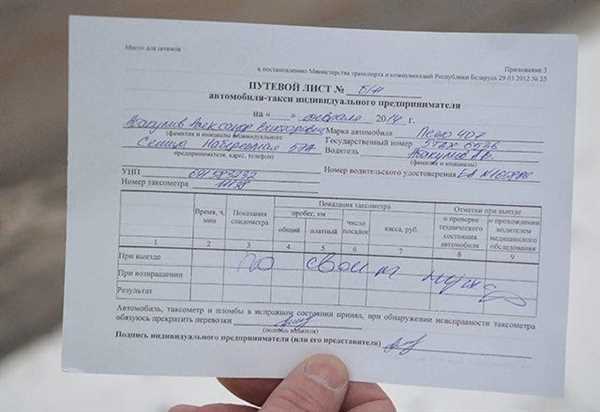 Место для штампа
Приложение 3
к постановлению Министерства транспорта и коммуникаций Республики Беларусь 29.03.2012 № 25
ПУТЕВОЙ ЛИСТ № Б/Н
автомобиля-такси индивидуального предпринимателя
на « » февраля 2014 г.
Александр Викторович Марка автомобиля Пежо 407
(фамилия и инициалы индивидуального
Государственный номер
Сеница Набережная
Водитель
предпринимателя, адрес, телефон)
(фамилия и инициалы)
УНП
Номер водительского удостоверения
Номер таксометра
Время, ч, мин
Показания спидометра
Показания таксометра
пробег, км
общий
платный
число посадок
касса, руб.
Отметки при выезде
о проверке технического состояния автомобиля
о прохождении водителем медицинского обследования
1 2 3 4 5 6 7 8 9
При выезде по своим нуждам
При возвращении
Результат
Автомобиль, таксометр и пломбы в исправном состоянии принял, при обнаружении неисправности таксометра
обязуюсь прекратить перевозки
(подпись водителя)
Подпись индивидуального предпринимателя (или его представителя)